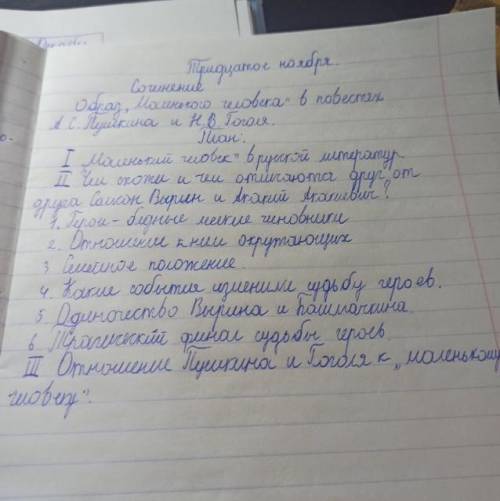 Тридцатое ноября.
Сочинение
Образ „Маленького человека" в повестях
А.С. Пушкина и Н.В. Гоголя.
План:
I „Маленький человек" в русской литератур
II Чем схожи и чем отличаются друг от
друга Самсон Вырин и Акакий Акакиевич?
1. Герои - бедные мелкие чиновники
2. Отношение к ним окружающих
3. Семейное положение.
4. Какие события изменили судьбу героев.
5. Одиночество Вырина и Башмачкина
6. Трагический финал судьбы героев
III Отношение Пушкина и Гоголя к „маленькому
человеку".